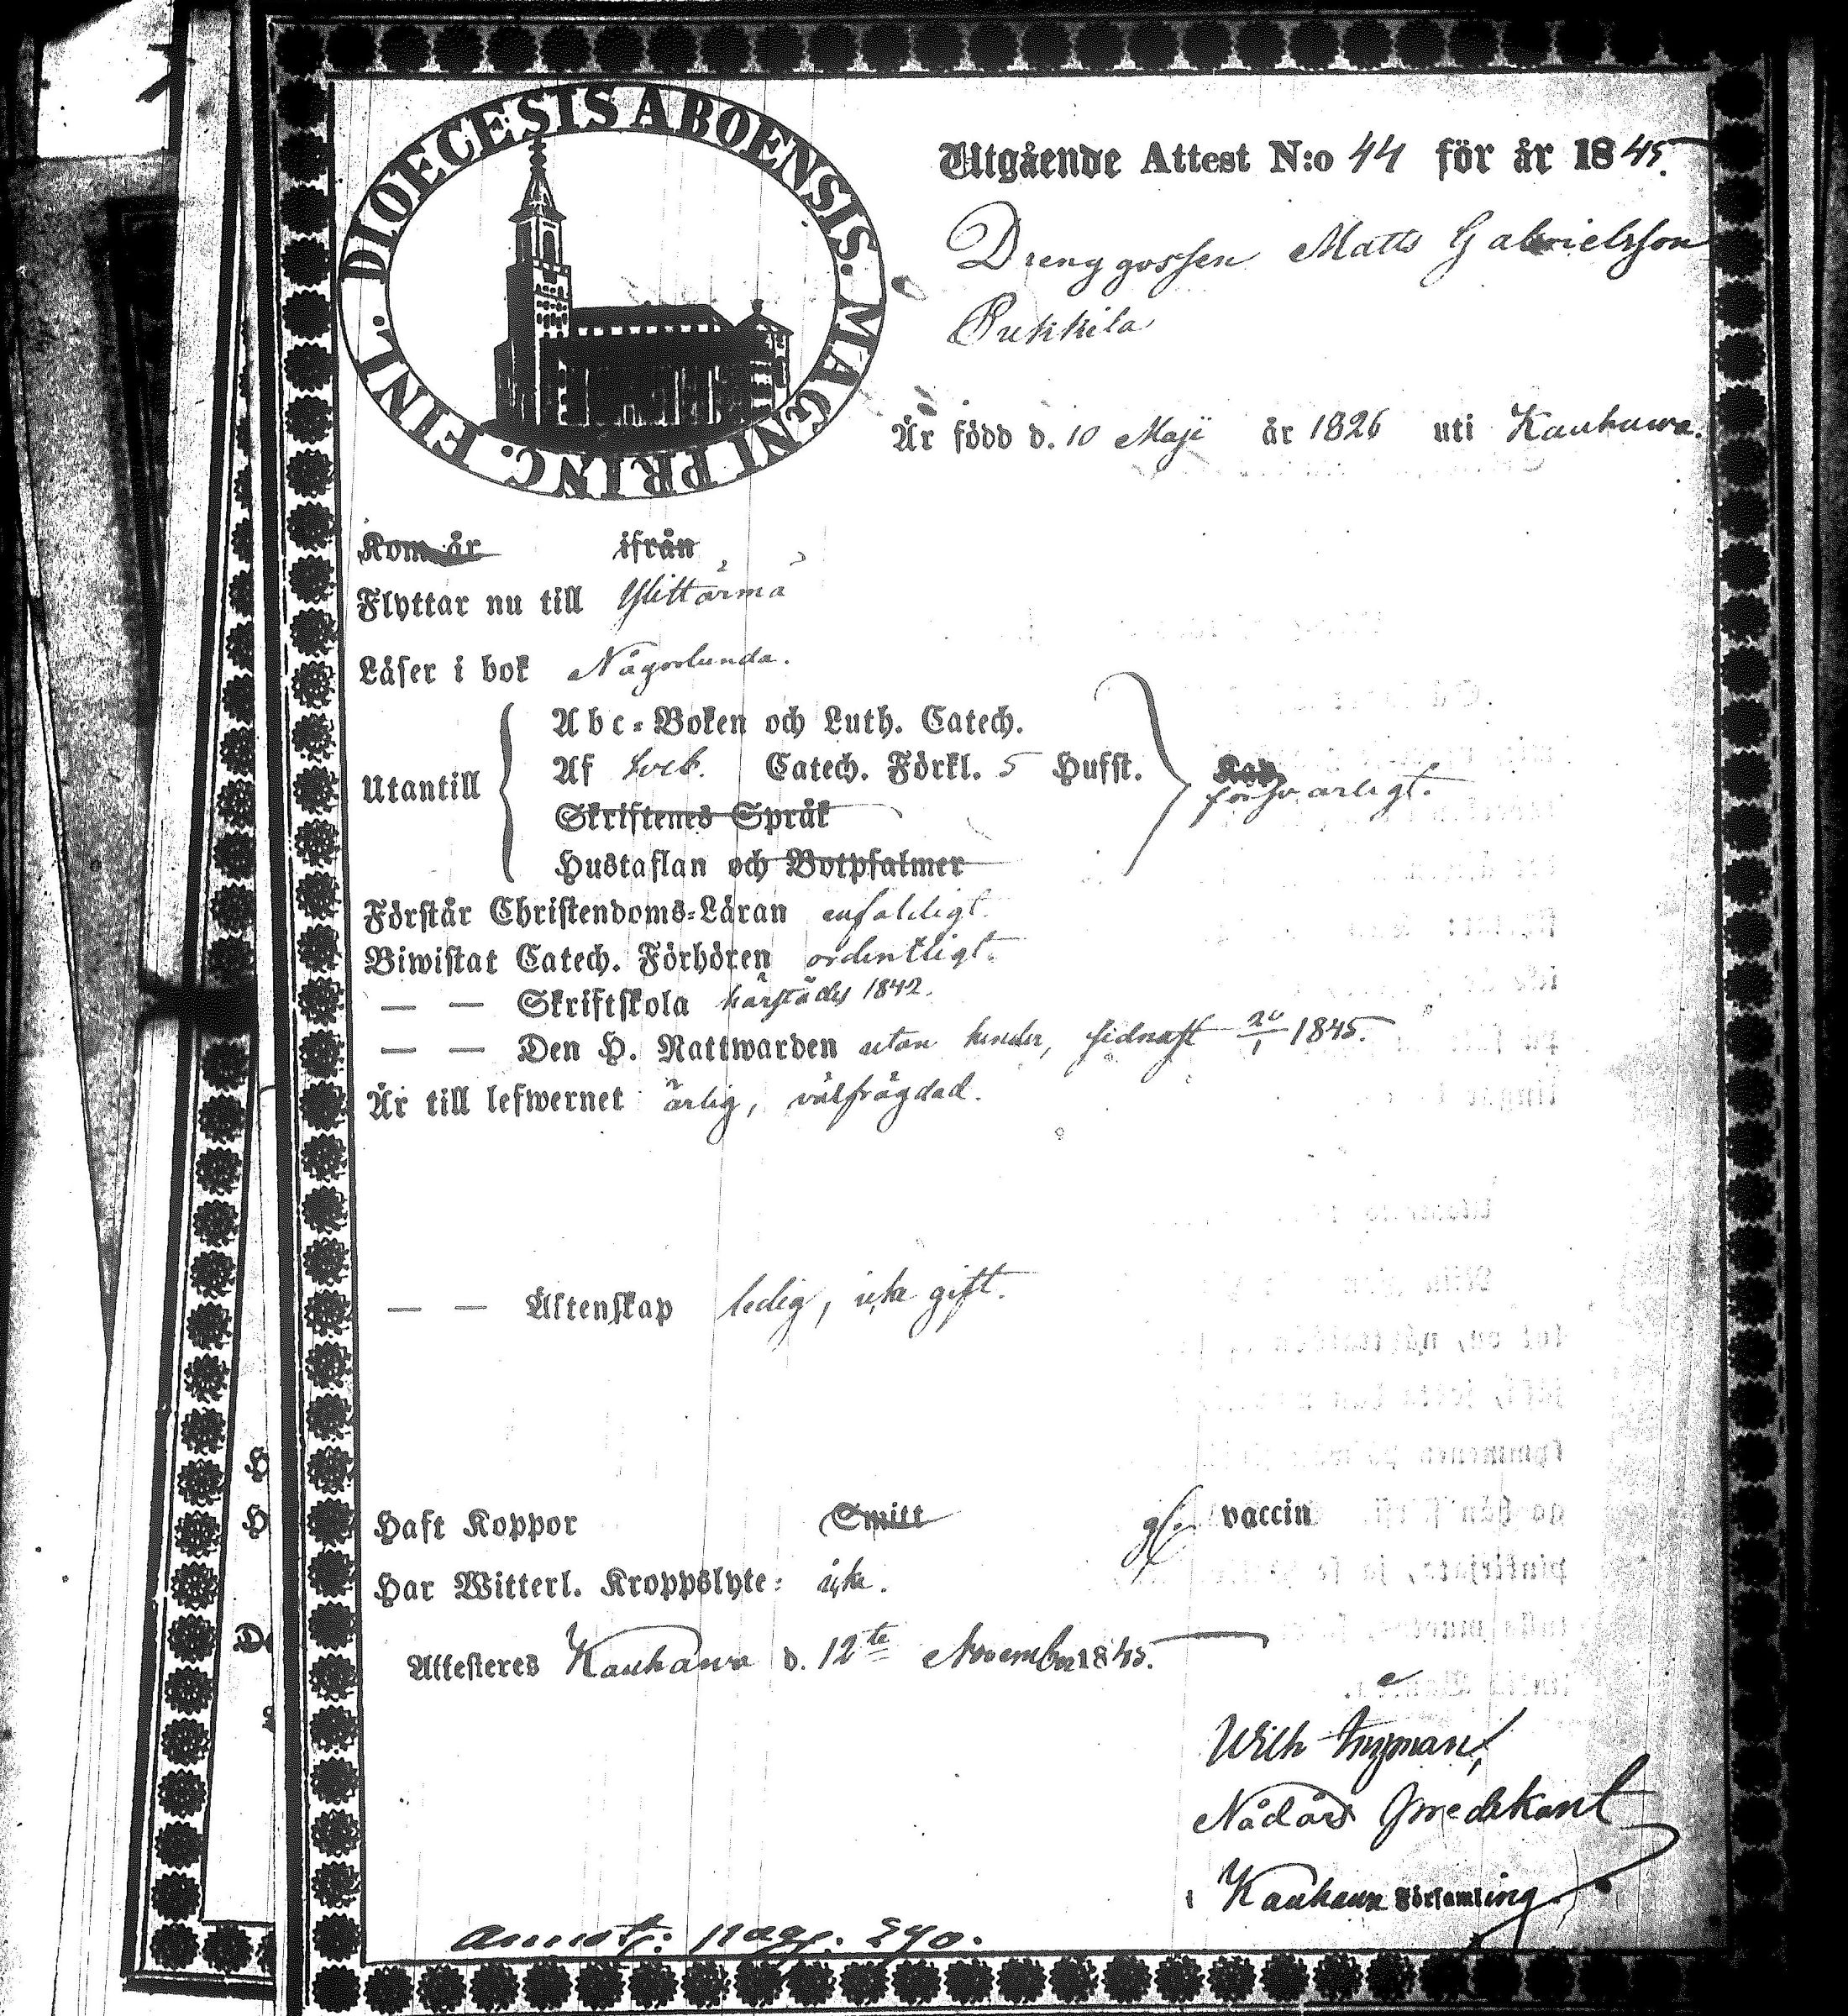 DIOECESIS ABOENSIS. MAGNI PRINC. FINL.
Utgående Attest N:o 44 för år 1845.
Drenggossen Matts Gabrielsson
Pukkila
Är född d. 10 Maji år 1826 uti Kauhawa.
Kom år ifrån
Flyttar nu till Ylittärmä
Läser i bok Någorlunda.
Abc-Boken och Luth. Catech.
Utantill Af Sveb. Catech. Förkl. 5 Hufst. försvarligt.
Skriftenes Språk
Hustaflan och Botpsalmer
Förstår Christendoms-Läran enfaldigt.
Biwistat Catech. Förhören ordentligt.
— — Skriftskola härstädes 1842.
— — Den H. Nattwarden utan hinder, sidnast 1845.
Är till lefwernet ärlig, välfrägdad.
— — Äktenskap ledig, icke gift.
Haft Koppor Smitt gl. vaccin
Har Witterl. Kroppslyte: icke.
Attesteres Kauhawa d. 12te November 1845.
Wilh
Nådårs Predikant
i Kauhawa Församling.
Annot: pag. 290.